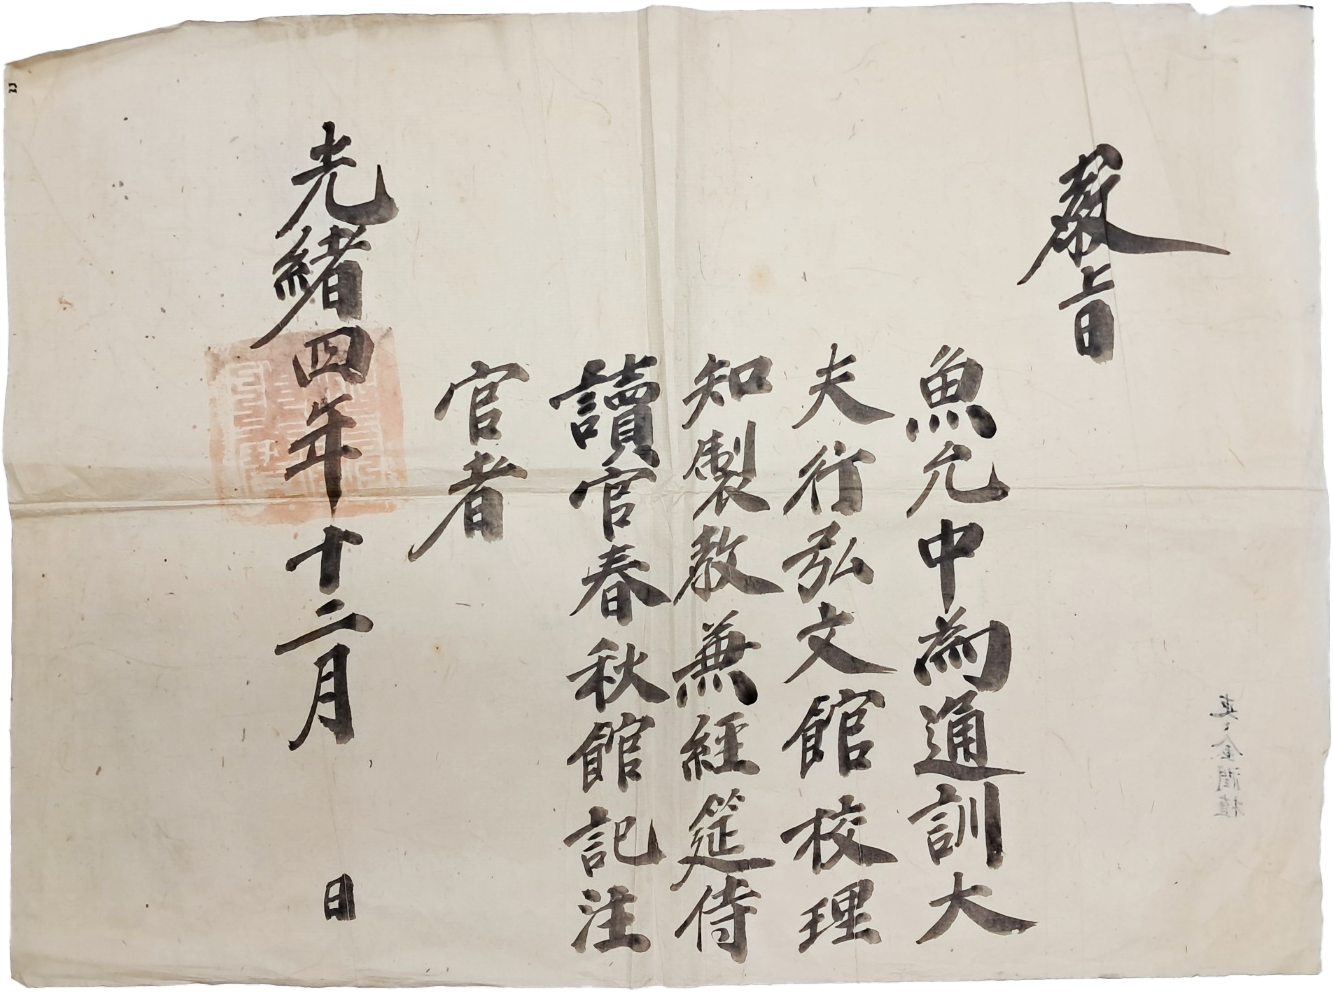 敎旨
魚允中為通訓大
夫行弘文館校理
知製教兼經筵侍
讀官春秋館記注
官者
光緒四年十二月 日